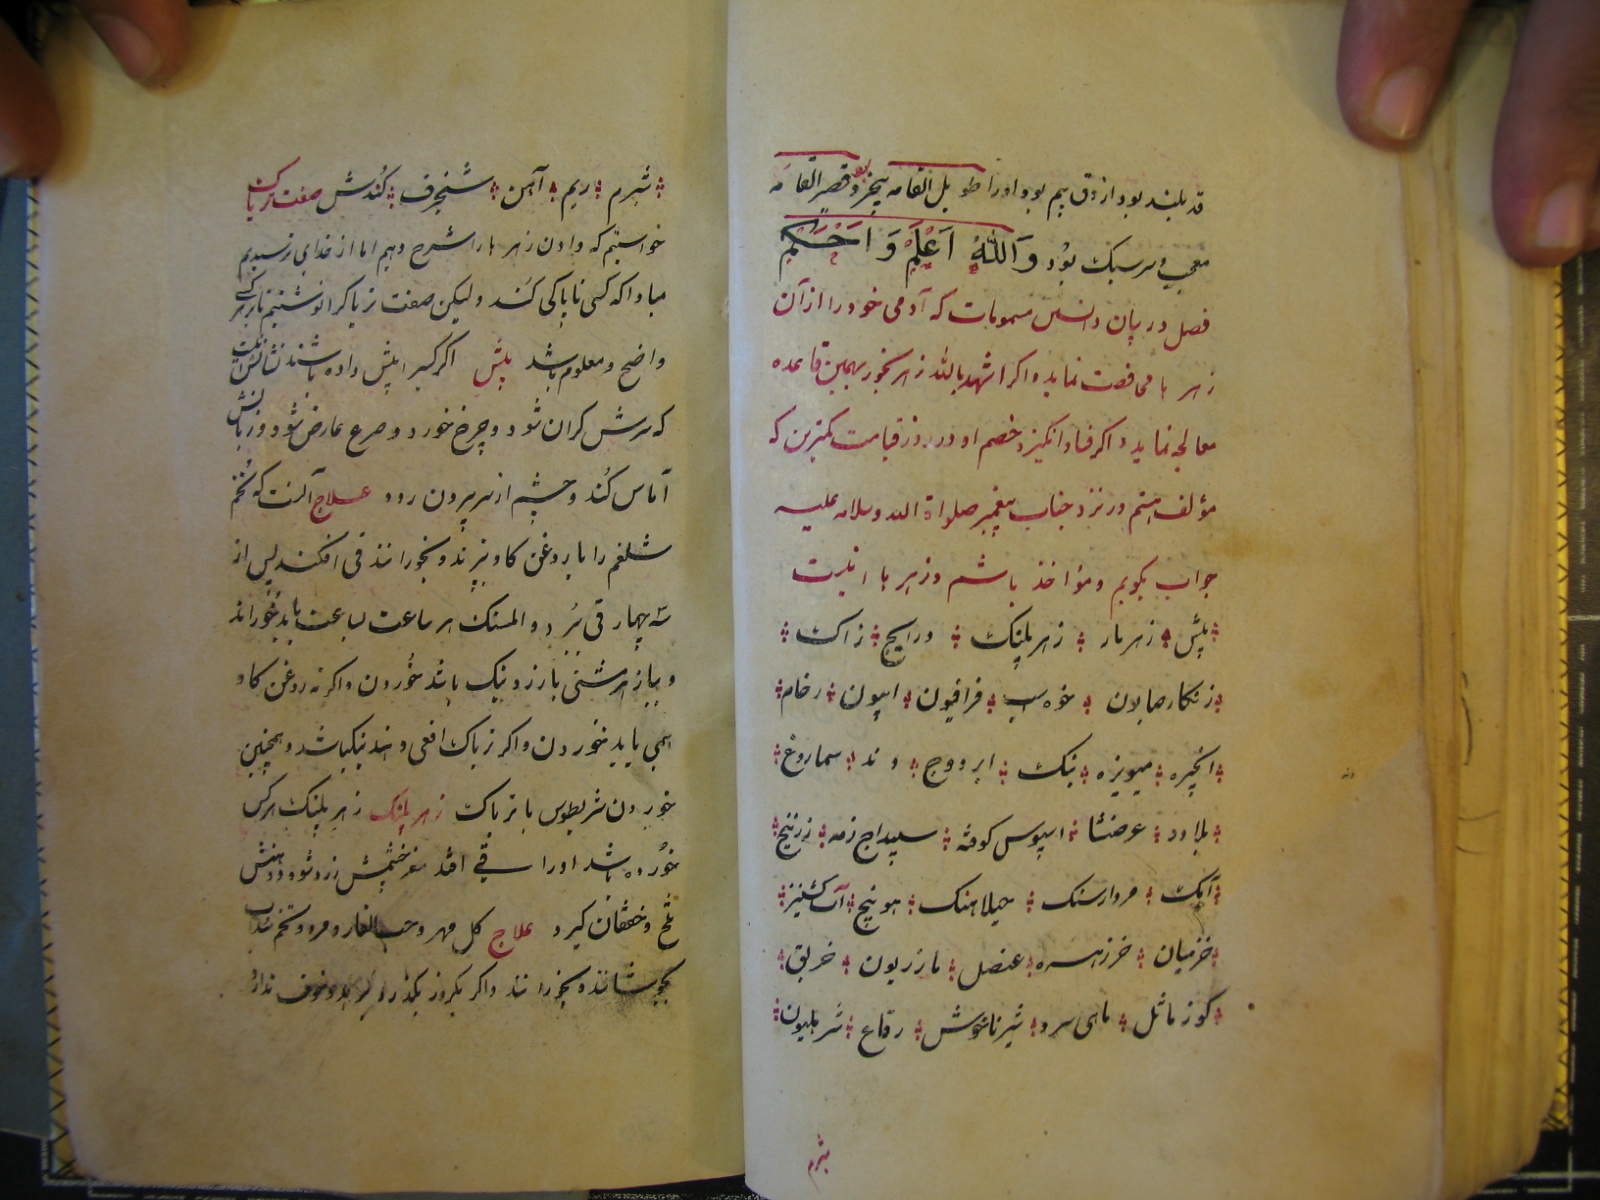 قد بلند بود از دق بیم بود و او را طویل القامه بیخرد بود قصیر القامه
معجب و سر سبک بود وَاللهُ اَعْلَمْ وَ اَحْکَمْ
فصل در بیان دانستن مسمومات که آدمی خود را از آن
زهر ها محافصت نماید و اکر اشهد بالله زهر بخورد بهمین قاعده
معالجه نماید و اکر فساد انکیزد خصم او در روز قیامت کمترین که
مؤلف هستم در نزد جناب پیغمبر صلواة الله وسلامه علیه
جواب بکویم و مؤاخذ باشم و زهر ها اینست
بیش زهر مار زهر پلنک ورایج زاک
زنکار صابون فرافیون اپیون رخام
انجیره میویزه بنک ابر و وج وند سماروغ
بلاود عرضنثا اسپوس کوفته سپیداج زمه زرنیخ
آبک مردارسنک حیلاهنک هوبیج آب کشنیز
خزمیان خرزهره عنصل مازریون خربق
کوز ماثل ماهی سرد شیر ناخوش رقاع شربلیون
شبرم
شبرم ریم آهن شنجرف کُندش صفت تریاک
خواستیم که دادن زهر ها را شرح دهیم اما از خدای ترسیدیم
مبادا که کسی ناپاکی کند ولیکن صفت تریاک را نوشتیم تا بر هر کس
واضح و معلوم باشد بیش اکر کسی را بیش داده باشند نشانش آنست
که سرش کران شود و چرخ خورد و صرع عارض شود و زبانش
آماس کند و چشم از سر بیرون رود علاج آنست که تخم
شلغم را با روغن کاو بپزند و بخورانند قی افکند پس از
سه چهار قی ببرد و المسک هر ساعت بساعت باید بخوراند
و بباز هر مشتی با رزد نیک باشد خوردن و اکر نه روغن کاو
همی باید خوردن و اکر تریاک افعی دهند نیکباشد و همچنین
خوردن شریطوس با تریاک زهر پلنک زهر پلنک هر کس
خورده باشد او را قی افتد سفر چشمش زرد شود و دهنش
تلخ و خفقان کیرد علاج کل مهر و حب الغار و مر و تخم سداب
بجوشانند و بخورانند و اکر یکروز بکذرد خوف ندارد